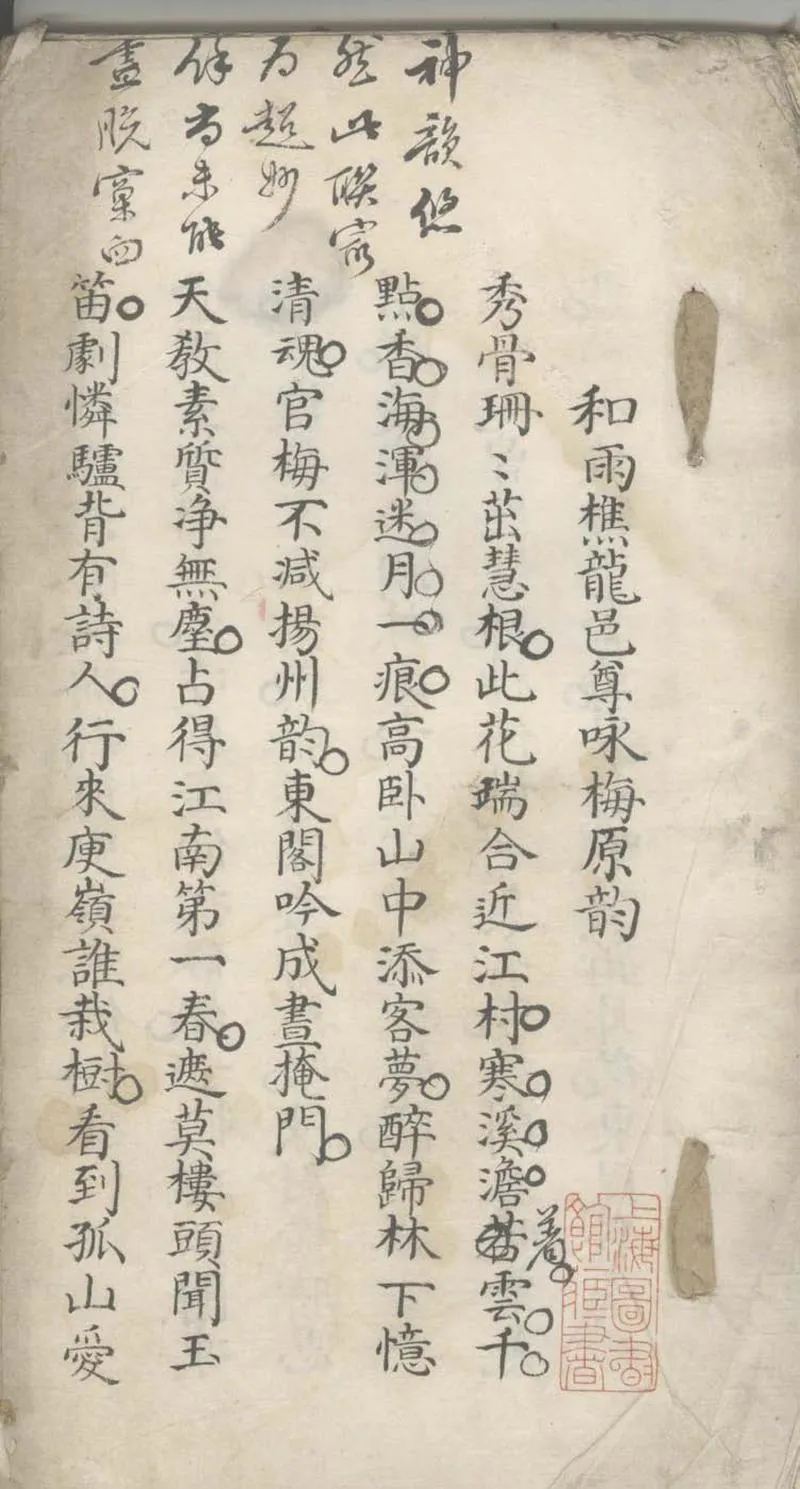 神韻悠
然此聯寂
為超妙
餘尚未能
盡脫窠臼
和雨樵龍邑尊咏梅原韵
秀骨珊〻茁慧根此花瑞合近江村寒溪澹着雲千
點香海渾迷月一痕高卧山中添客夢醉歸林下憶
清魂官梅不減揚州韵東閣吟成晝掩門
天教素質净無塵占得江南第一春遮莫樓頭聞玉
笛劇憐驢背有詩人行來庾嶺誰栽樹看到孤山愛
上海圖書
館藏書